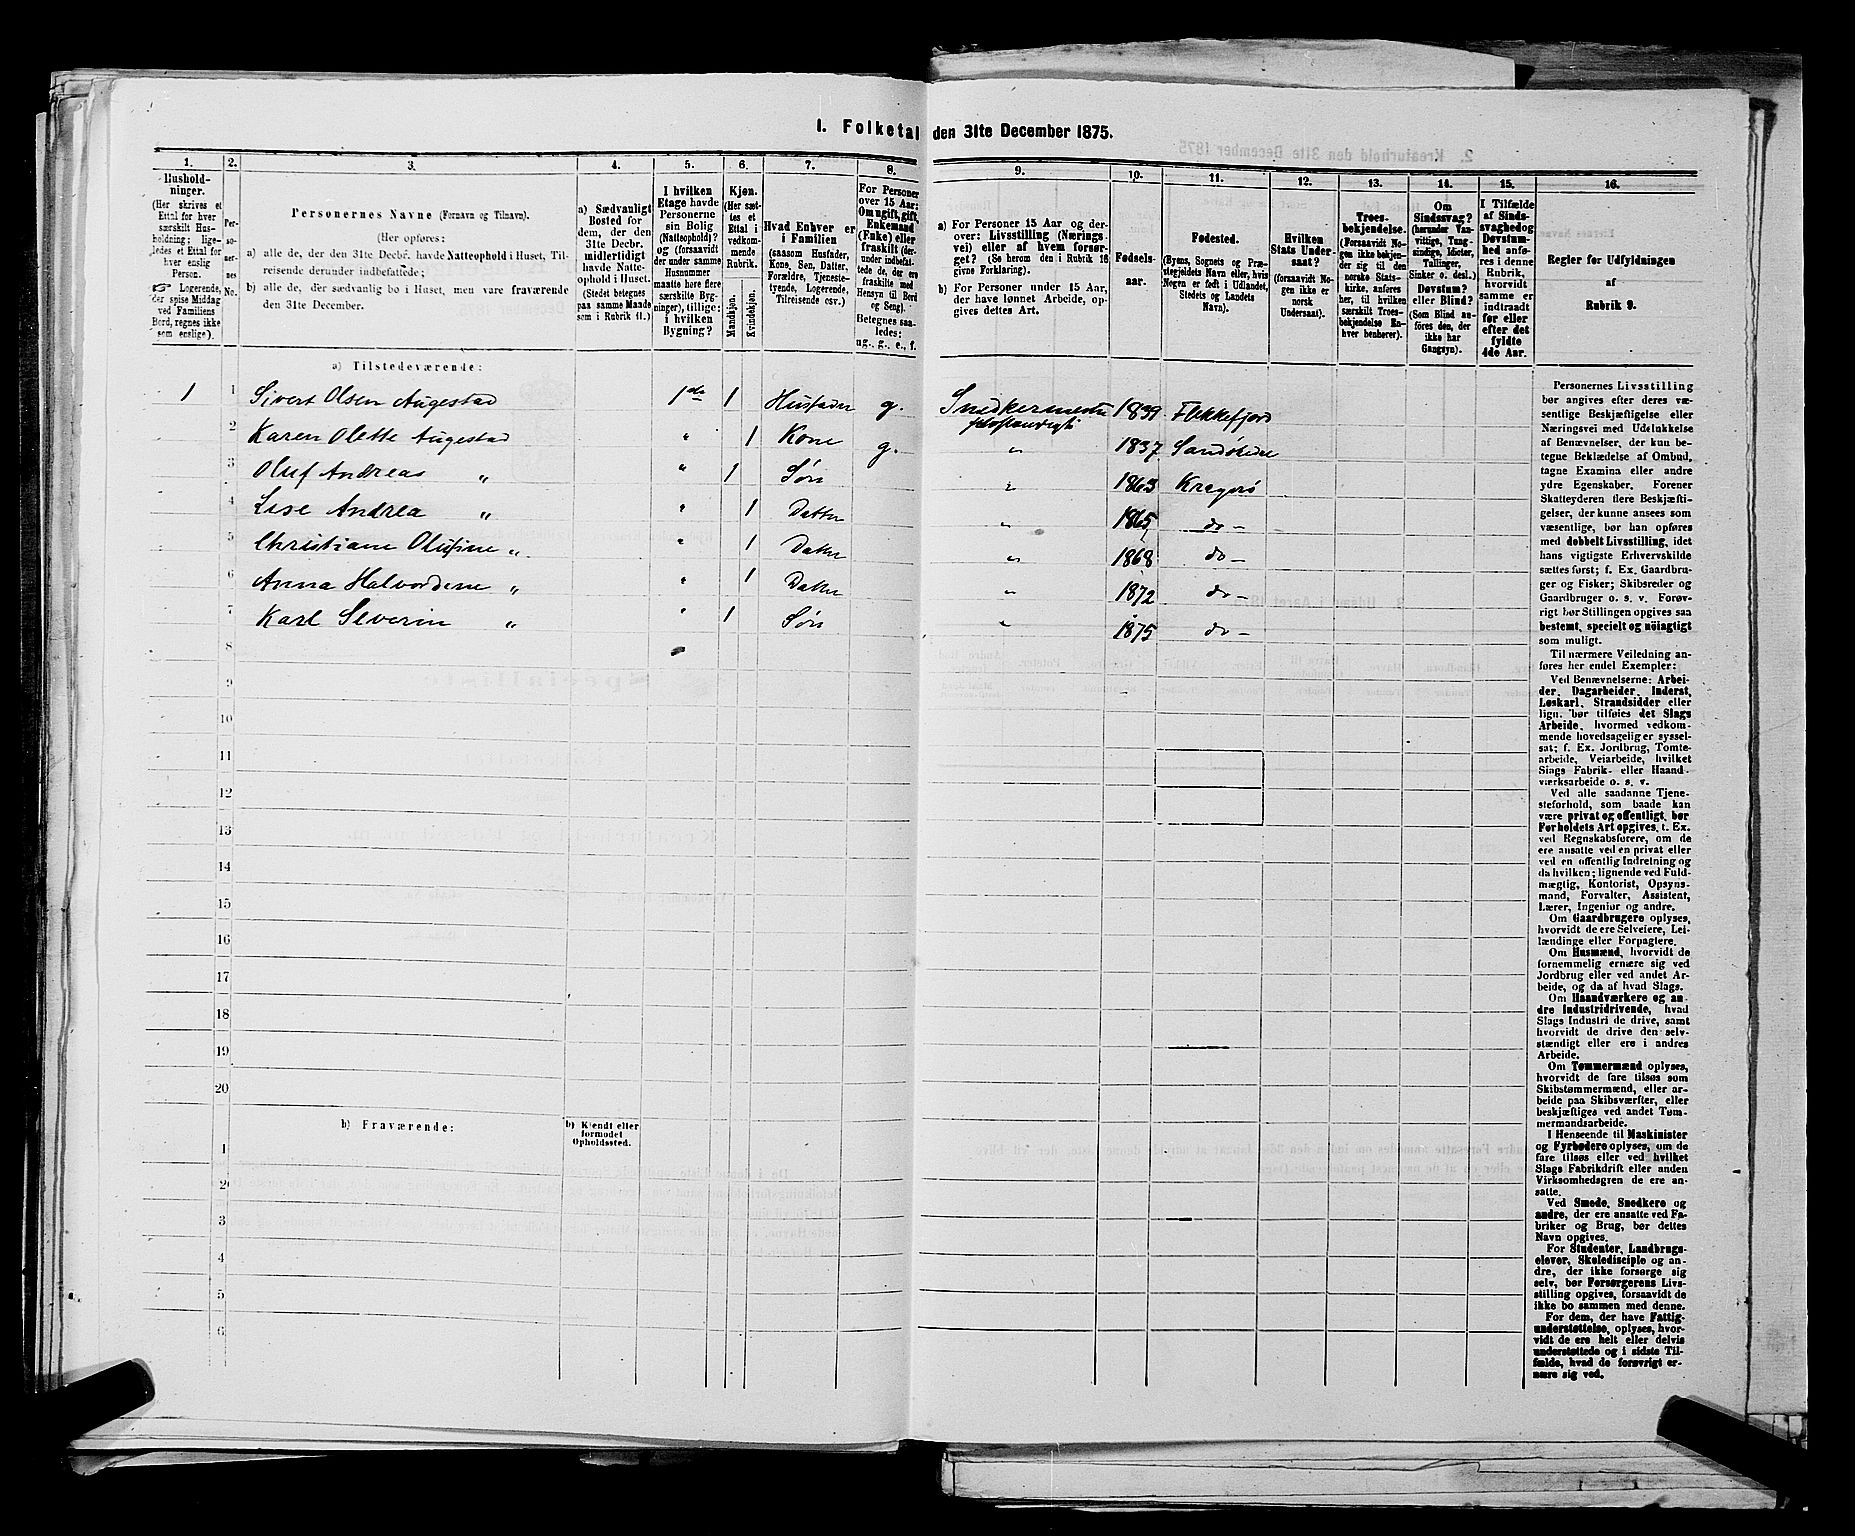 I. Folketal den 31te December 1875.
1.
2.
3.
4.
5.
6.
7.
8.
9.
10.
11.
12.
13.
14.
15.
16.
Husholdninger.
(Her skrives et
Ettal for hver
særskilt Husholdning;
ligeledes et Ettal for
hver enslig
Person.
☞ Logerende,
der spise Middag
ved Familiens
Bord, regnes ikke
som enslige).
Personernes No.
Personernes Navne (Fornavn og Tilnavn).
(Her opføres:
a) alle de, der den 31te Decbr. havde Natteophold i Huset, Tilreisende derunder indbefattede;
b) alle de, der sædvanlig bo i Huset, men vare fraværende
den 31te December.
a) Sædvanligt
Bosted for
dem, der den
31te Decbr.
midlertidigt
havde Natteophold i Huset.
(Stedet betegnes
paa samme Maade
som i Rubrik 11.)
I hvilken
Etage havde
Personerne
sin Bolig
(Natteophold)?
og (forsaavidt
der under samme
Husnummer
maatte høre flere
særskilte Bygninger), tillige:
i hvilken
Bygning?
Kjøn.
(Her sættes et
Ettal i
vedkommende
Rubrik.
Mandkjøn.
Kvindekjøn.
Hvad Enhver er
i Familien
(saasom Husfader,
Kone, Søn, Datter,
Forældre, Tjenestetyende, Logerende,
Tilreisende osv.)
For Personer
over 15 Aar:
Om ugift, gift,
Enkemand
(Enke) eller
fraskilt (derunder indbefattede de, der ere
fraskilte med
Hensyn til Bord
og Seng).
Betegnes saaledes:
ug., g., e., f.
a) For Personer 15 Aar og derover: Livsstilling (Næringsvei) eller af hvem forsørget? (Se herom den i Rubrik 16
givne Forklaring).
b) For Personer under 15 Aar,
der have lønnet Arbeide, opgives dettes Art.
Fødselsaar.
Fødested.
(Byens, Sognets og Præstegjeldets Navn eller, hvis
Nogen er født i Udlandet,
Stedets og Landets
Navn).
Hvilken
Stats Undersaat?
(forsaavidt Nogen ikke er
norsk
Undersaat).
Troesbekjendelse.
(Forsaavidt Nogen ikke bekjender sig til den
norske Statskirke, anføres
her, til hvilken
særskilt Troesbekjendelse Enhver henhører).
Om
Sindssvag?
(herunder Vanvittige, Tungsindige, Idioter,
Tullinger,
Sinker o. desl.)
Døvstum?
eller Blind?
(Som Blind anføres den, der
ikke har
Gangsyn).
I Tilfælde
af Sindssvaghed og
Døvstumhed anføres i denne
Rubrik,
hvorvidt
samme er
indtraadt
før eller
efter det
fyldte
4de Aar.
Regler for Udfyldningen
af
Rubrik 9.
a) Tilstedeværende:
1 1 Sivert Olsen Augestad 1ste 1 Husfader g. Snedkermester selvstændigt 1839 Flekkefjord
2 Karen Olette Augestad " 1 Kone g. " 1837 Sandøkedal
3 Oluf Andreas " " 1 Søn " 1863 Kragerø
4 Lise Andrea " " 1 Datter " 1865 do -
5 Christiane Olufine " " 1 Datter " 1868 do -
6 Anna Halvordine " " 1 Datter " 1872 do -
7 Karl Severin " " 1 Søn " 1875 do -
8
9
10
11
12
13
14
15
16
17
18
19
20
b) Fraværende:
b) Kjendt eller
formodet
Opholdssted.
1
2
3
4
5
6
Personernes Livsstilling
bør angives efter deres væsentlige Beskjæftigelse eller
Næringsvei med Udelukkelse
af Benævnelser, der kun betegne Beklædelse af Ombud,
tagne Examina eller andre
ydre Egenskaber. Forener
Skatteyderen flere Beskjæftigelser, der kunne ansees som
væsentlige, bør han opføres
med dobbelt Livsstilling, idet
hans vigtigste Erhvervskilde
sættes først; f. Ex. Gaardbruger og Fisker; Skibsreder og
Gaardbruger o. s. v. Forøvrigt bør Stillingen opgives saa
bestemt, specielt og nøiagtigt
som muligt.
Til nærmere Veiledning anføres her endel Exempler:
Ved Benævnelserne: Arbeider, Dagarbeider, Inderst,
Løskarl, Strandsidder eller
lign. bør tilføies det Slags
Arbeide, hvormed vedkommende hovedsagelig er sysselsat; f. Ex. Jordbrug, Tomtearbeide, Veiarbeide, hvilket
Slags Fabrik- eller Haandværksarbeide o. s. v.
Ved alle saadanne Tjenesteforhold, som baade kan
være privat og offentligt, bør
Forholdets Art opgives, t. Ex.
ved Regnskabsførere, om de
ere ansatte ved en privat eller
ved en offentlig Indretning og
da hvilken; lignende ved Fuldmægtig, Kontorist, Opsynsmand, Forvalter, Assistent,
Lærer, Ingeniør og andre.
Om Gaardbrugere oplyses,
hvorvidt de ere Selveiere, Leilændinge eller Forpagtere.
Om Husmænd, hvorvidt de
fornemmelig ernære sig ved
Jordbrug eller ved andet Arbeide, og da af hvad Slags.
Om Haandværkere og andre Industridrivende, hvad
Slags Industri de drive, samt
hvorvidt de drive den selvstændigt eller ere i andres
Arbeide.
Om Tømmermænd oplyses,
hvorvidt de fare tilsøs som
Skibstømmermænd, eller arbeide paa Skibsværfter, eller
beskjæftiges ved andet Tømmermandsarbeide.
I Henseende til Maskinister
og Fyrbødere oplyses, om de
fare tilsøs eller ved hvilket
Slags Fabrikdrift eller anden
Virksomhedsgren de ere ansatte.
Ved Smede, Snedkere og
andre, der ere ansatte ved Fabriker og Brug, bør dettes
Navn opgives.
For Studenter, Landbrugselever, Skoledisciple og andre, der ikke forsørge sig
selv, bør Forsørgerens Livsstilling opgives, forsaavidt de
ikke bo sammen med denne.
For dem, der have Fattigunderstøttelse, oplyses, hvorvidt de ere helt eller delvis
understøttede og i sidste Tilfælde, hvad de forøvrigt ernære sig ved.